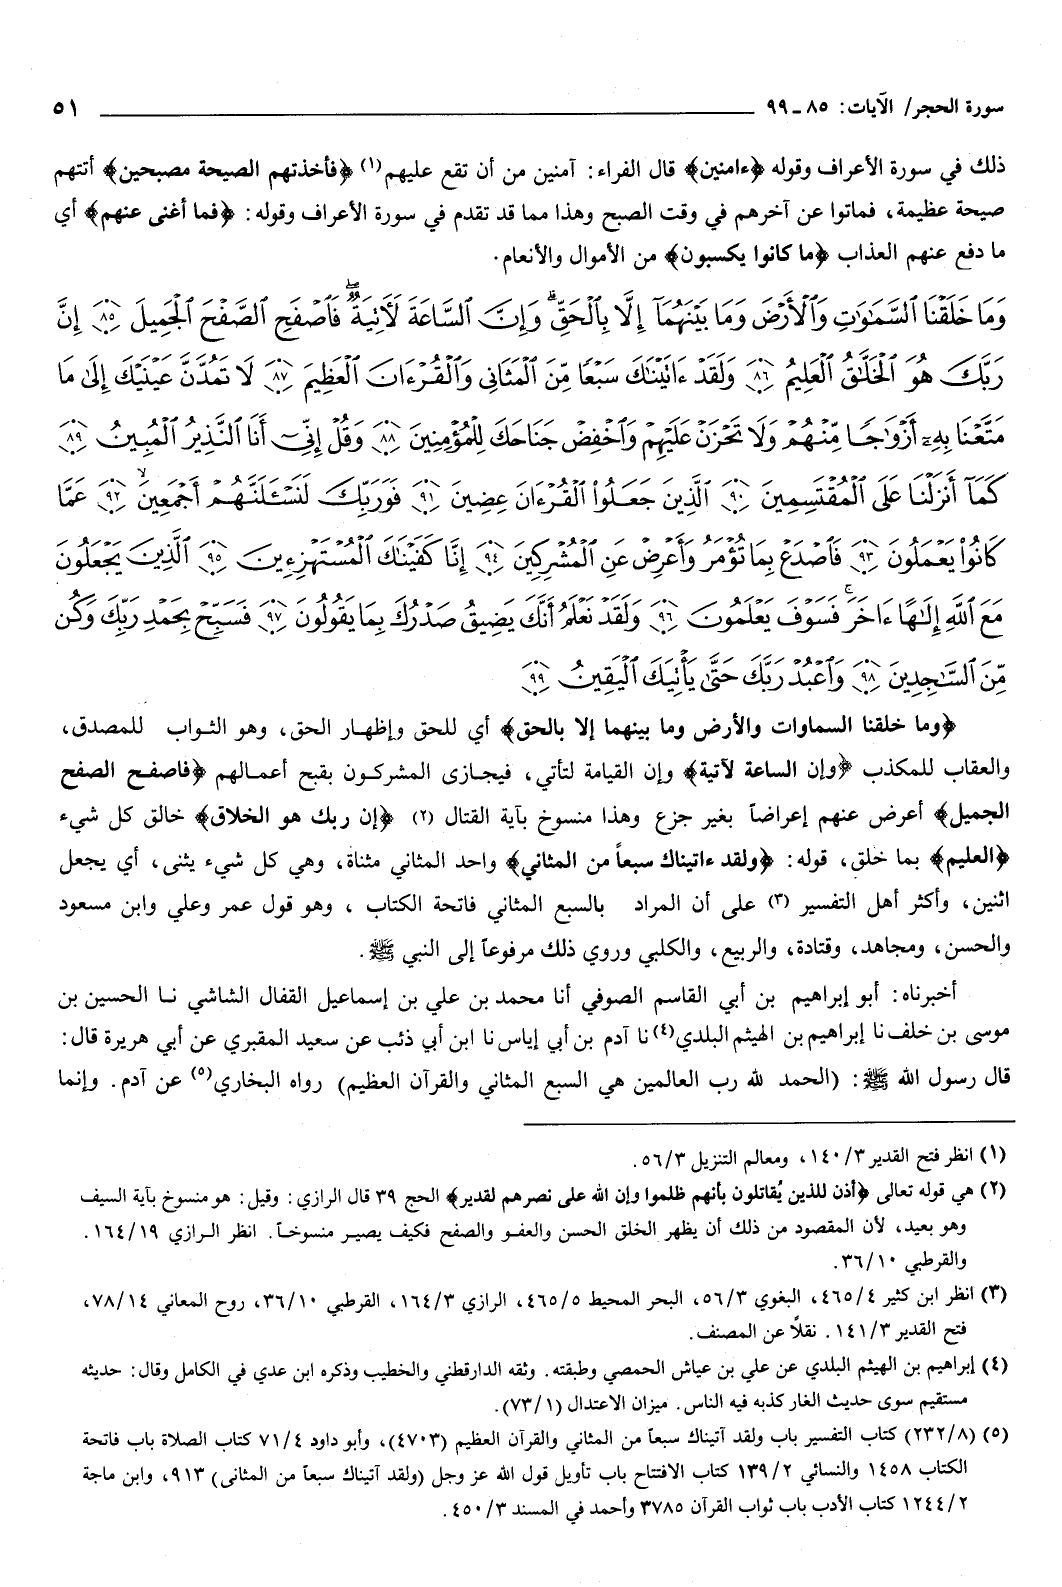 سورة الحجر/ الآيات: ٨٥ ـ ٩٩ ٥١
ذلك في سورة الأعراف وقوله ﴿ءامنين﴾ قال الفراء: آمنين من أن تقع عليهم(١) ﴿فأخذتهم الصيحة مصبحين﴾ أتتهم
صيحة عظيمة، فماتوا عن آخرهم في وقت الصبح وهذا مما قد تقدم في سورة الأعراف وقوله: ﴿فما أغنى عنهم﴾ أي
ما دفع عنهم العذاب ﴿ما كانوا يكسبون﴾ من الأموال والأنعام.
وَمَا خَلَقْنَا ٱلسَّمَٰوَٰتِ وَٱلْأَرْضَ وَمَا بَيْنَهُمَآ إِلَّا بِٱلْحَقِّ ۗ وَإِنَّ ٱلسَّاعَةَ لَءَاتِيَةٌ ۖ فَٱصْفَحِ ٱلصَّفْحَ ٱلْجَمِيلَ ﴿٨٥﴾ إِنَّ
رَبَّكَ هُوَ ٱلْخَلَّٰقُ ٱلْعَلِيمُ ﴿٨٦﴾ وَلَقَدْ ءَاتَيْنَٰكَ سَبْعًا مِّنَ ٱلْمَثَانِى وَٱلْقُرْءَانَ ٱلْعَظِيمَ ﴿٨٧﴾ لَا تَمُدَّنَّ عَيْنَيْكَ إِلَىٰ مَا
مَتَّعْنَا بِهِۦٓ أَزْوَٰجًا مِّنْهُمْ وَلَا تَحْزَنْ عَلَيْهِمْ وَٱخْفِضْ جَنَاحَكَ لِلْمُؤْمِنِينَ ﴿٨٨﴾ وَقُلْ إِنِّىٓ أَنَا ٱلنَّذِيرُ ٱلْمُبِينُ ﴿٨٩﴾
كَمَآ أَنزَلْنَا عَلَى ٱلْمُقْتَسِمِينَ ﴿٩٠﴾ ٱلَّذِينَ جَعَلُوا۟ ٱلْقُرْءَانَ عِضِينَ ﴿٩١﴾ فَوَرَبِّكَ لَنَسْـَٔلَنَّهُمْ أَجْمَعِينَ ﴿٩٢﴾ عَمَّا
كَانُوا۟ يَعْمَلُونَ ﴿٩٣﴾ فَٱصْدَعْ بِمَا تُؤْمَرُ وَأَعْرِضْ عَنِ ٱلْمُشْرِكِينَ ﴿٩٤﴾ إِنَّا كَفَيْنَٰكَ ٱلْمُسْتَهْزِءِينَ ﴿٩٥﴾ ٱلَّذِينَ يَجْعَلُونَ
مَعَ ٱللَّهِ إِلَٰهًا ءَاخَرَ ۚ فَسَوْفَ يَعْلَمُونَ ﴿٩٦﴾ وَلَقَدْ نَعْلَمُ أَنَّكَ يَضِيقُ صَدْرُكَ بِمَا يَقُولُونَ ﴿٩٧﴾ فَسَبِّحْ بِحَمْدِ رَبِّكَ وَكُن
مِّنَ ٱلسَّٰجِدِينَ ﴿٩٨﴾ وَٱعْبُدْ رَبَّكَ حَتَّىٰ يَأْتِيَكَ ٱلْيَقِينُ ﴿٩٩﴾
﴿وما خلقنا السماوات والأرض وما بينهما إلا بالحق﴾ أي للحق وإظهار الحق، وهو الثواب للمصدق،
والعقاب للمكذب ﴿وإن الساعة لآتية﴾ وإن القيامة لتأتي، فيجازى المشركون بقبح أعمالهم ﴿فاصفح الصفح
الجميل﴾ أعرض عنهم إعراضاً بغير جزع وهذا منسوخ بآية القتال (٢) ﴿إن ربك هو الخلاق﴾ خالق كل شيء
﴿العليم﴾ بما خلق، قوله: ﴿ولقد ءاتيناك سبعاً من المثاني﴾ واحد المثاني مثناة، وهي كل شيء يثنى، أي يجعل
اثنين، وأكثر أهل التفسير (٣) على أن المراد بالسبع المثاني فاتحة الكتاب ، وهو قول عمر وعلي وابن مسعود
والحسن، ومجاهد، وقتادة، والربيع، والكلبي وروي ذلك مرفوعاً إلى النبي ﷺ.
أخبرناه: أبو إبراهيم بن أبي القاسم الصوفي أنا محمد بن علي بن إسماعيل القفال الشاشي نا الحسين بن
موسى بن خلف نا إبراهيم بن الهيثم البلدي(٤) نا آدم بن أبي إياس نا ابن أبي ذئب عن سعيد المقبري عن أبي هريرة قال:
قال رسول الله ﷺ: (الحمد لله رب العالمين هي السبع المثاني والقرآن العظيم) رواه البخاري(٥) عن آدم. وإنما
(١) انظر فتح القدير ١٤٠/٣، ومعالم التنزيل ٥٦/٣.
(٢) هي قوله تعالى ﴿أذن للذين يُقاتلون بأنهم ظلموا وإن الله على نصرهم لقدير﴾ الحج ٣٩ قال الرازي: وقيل: هو منسوخ بآية السيف
وهو بعيد، لأن المقصود من ذلك أن يظهر الخلق الحسن والعفو والصفح فكيف يصير منسوخاً. انظر الرازي ١٦٤/١٩.
والقرطبي ٣٦/١٠.
(٣) انظر ابن كثير ٤٦٥/٤، البغوي ٥٦/٣، البحر المحيط ٤٦٥/٥، الرازي ١٦٤/٣، القرطبي ٣٦/١٠، روح المعاني ٧٨/١٤،
فتح القدير ١٤١/٣. نقلًا عن المصنف.
(٤) إبراهيم بن الهيثم البلدي عن علي بن عياش الحمصي وطبقته. وثقه الدارقطني والخطيب وذكره ابن عدي في الكامل وقال: حديثه
مستقيم سوى حديث الغار كذبه فيه الناس. ميزان الاعتدال (٧٣/١).
(٥) (٢٣٢/٨) كتاب التفسير باب ولقد آتيناك سبعاً من المثاني والقرآن العظيم (٤٧٠٣)، وأبو داود ٧١/٤ كتاب الصلاة باب فاتحة
الكتاب ١٤٥٨ والنسائي ١٣٩/٢ كتاب الافتتاح باب تأويل قول الله عز وجل (ولقد آتيناك سبعاً من المثانى) ٩١٣، وابن ماجة
١٢٤٤/٢ كتاب الأدب باب ثواب القرآن ٣٧٨٥ وأحمد في المسند ٤٥٠/٣.